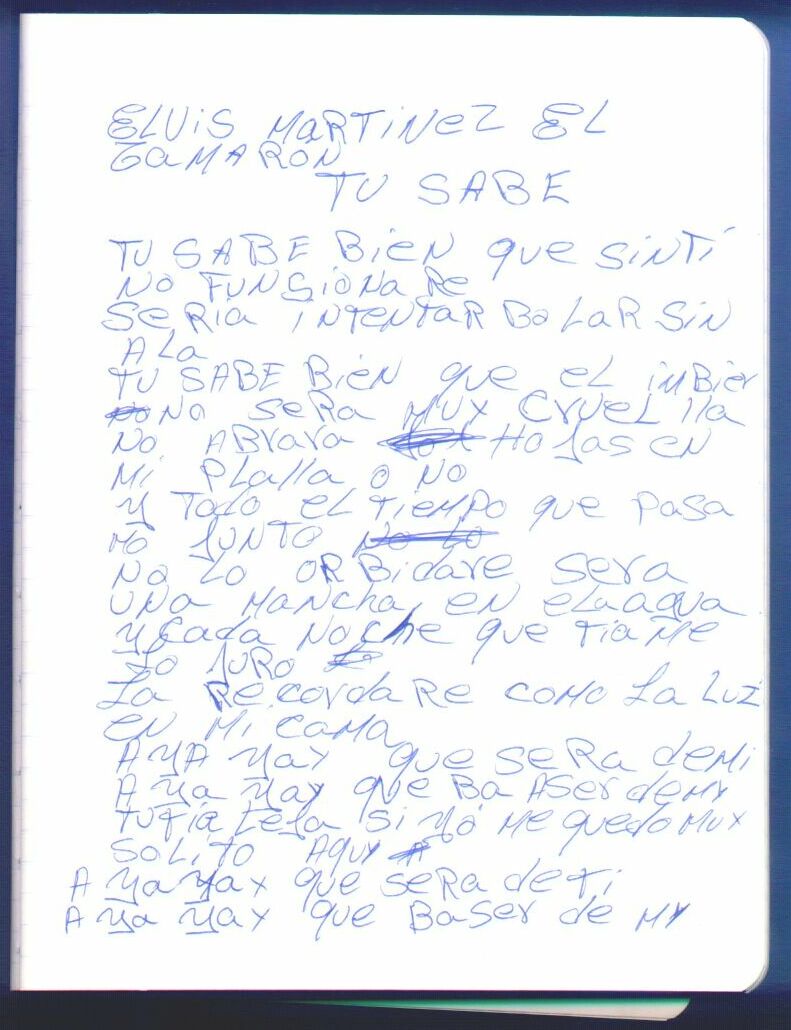 ELViS MaRTiNeZ EL
CaMARON
TU SABE
TU SABE Bien que sinTi
No FUNSiONa Re
SeRia iNTeNTaR Bo LaR Sin
A La
TU SABE Bien que eL imBier
No seRa MUY CrueL lla
No ABrara HoJas en
Mi PLaLLa o No
Y ToDo eL TieMPo que Pasa
Mo JUNTo
No Lo ORBiDaRe SeRa
UNa MaNCha en eLaagua
Y Cada NoChe que Tiame
Lo JURo
La Re CordaRe como La LUZ
en Mi Cama
A YA YaY que seRa deMi
A Ya YaY que Ba ASer deMY
TU Tia LeJa Si Yo Me quedo MUY
SoLiTo AquY
A YaYaY que seRa de Ti
A Ya YaY que BaSer de MY